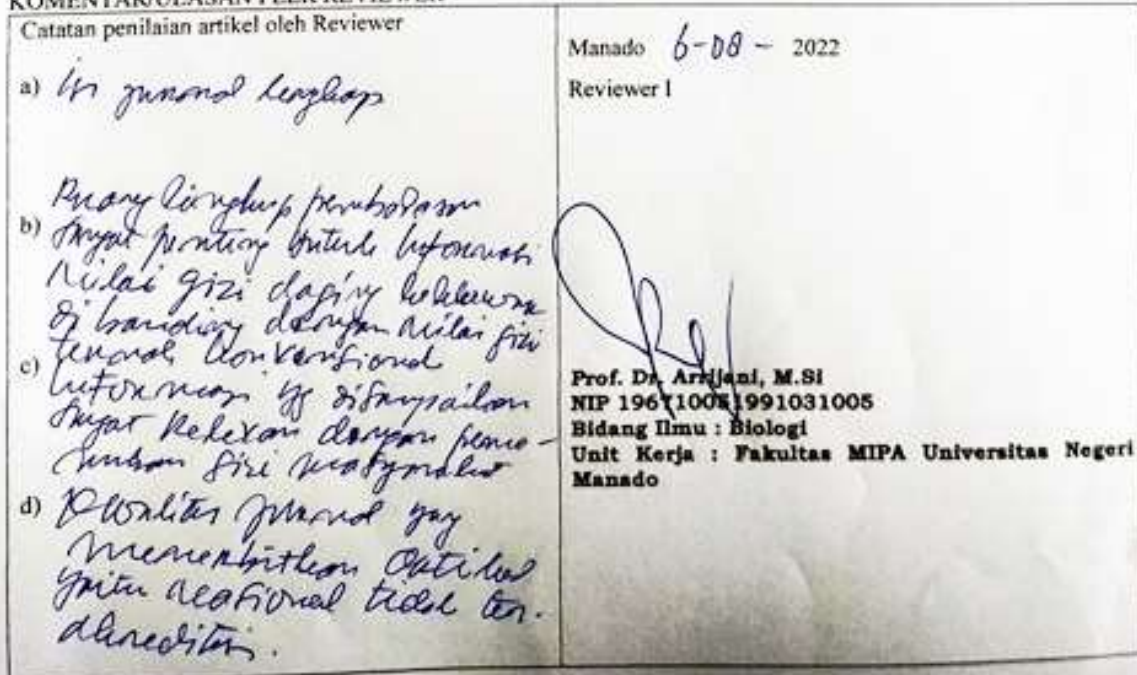 KOMENTAR/ULASAN PEER REVIEWER
Catatan penilaian artikel oleh Reviewer
a) Isi jurnal lengkap
b) Ruang lingkup pembahasan
sangat penting untuk informasi
nilai gizi daging kelelawar
di banding dengan nilai gizi
ternak konvensional
c) informasi yg disampaikan
sangat relevan dengan peme-
nuhan gizi masyarakat
d) Kualitas jurnal yang
menerbitkan artikel
yaitu nasional tidak ter-
akreditasi.
Manado 6-08- 2022
Reviewer I
Prof. Dr. Arrijani, M.Si
NIP 1967100 1991031005
Bidang Ilmu : Biologi
Unit Kerja : Fakultas MIPA Universitas Negeri
Manado